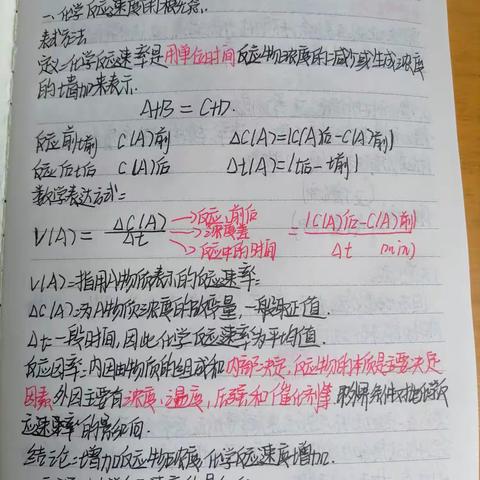 一、化学反应速度的概念.
表示方法
定义:化学反应速率是用单位时间反应物浓度的减少或生成浓度
的增加来表示.
A+B = C+D.
反应前t前 C(A)前 ΔC(A)=|C(A)后-C(A)前|
反应后t后 C(A)后 Δt(A)=|t后-t前|
数学表达方式:
V(A)= ΔC(A)/Δt →反应前后 →浓度差 →反应中的时间 = |C(A)后-C(A)前|/Δt min)
V(A)=指用A物质表示的反应速率:
ΔC(A)=为A物质浓度的改变量,一般取正值.
Δt:一段时间,因此化学反应速率为平均值.
反应因率:内因由物质的组成和内部决定,反应物的本质是主要决定
因素,外因主要有浓度、温度、压强和催化剂等
应速率的影响.
结论:增加反应物浓度,化学反应速度增加.